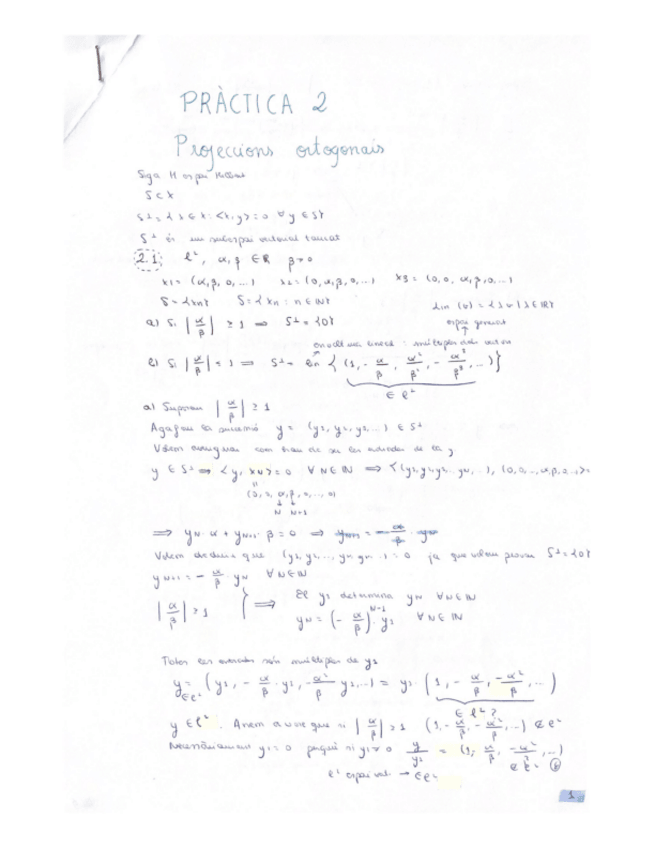 PRÀCTICA 2
Projeccions ortogonals
Siga H espai Hilbert
S ⊂ X
S⊥ = { x ∈ X : <x,y> = 0 ∀ y ∈ S}
S⊥ és un subespai vectorial tancat
2.1 ℓ², α, β ∈ ℝ β ≠ 0
x1 = (α, β, 0, ...) x2 = (0, α, β, 0, ...) x3 = (0, 0, α, β, 0, ...)
S = {xn} S = {xn : n ∈ ℕ} lin (v) = {λv | λ ∈ ℝ}
a) Si |α/β| ≥ 1 ⇒ S⊥ = {0} espai generat
envoltura lineal : múltiples
b) Si |α/β| = 1 ⇒ S⊥ = lin { (1, -α/β, α²/β², -α³/β³, ...) }
∈ ℓ²
a) Suposem |α/β| ≥ 1
Agafem la successió y = (y1, y2, y3, ...) ∈ S⊥
Volem com han de ser les de la y
y ∈ S⊥ ⇒ <y, xN> = 0 ∀ N ∈ ℕ ⇒ <(y1, y2, y3, ... yN, ...), (0, 0, ..., α, β, 0, ...)> =
(0, 0, α, β, 0, ..., 0)
N N+1
⇒ yN · α + yN+1 · β = 0 ⇒
Volem deduir que (y1, y2, ..., yN, yN+1 ...) = 0 ja que volem provar S⊥ = {0}
yN+1 = - α/β · yN ∀ N ∈ ℕ
|α/β| ≥ 1 } ⇒ El y1 determina yN ∀ N ∈ ℕ
yN = (- α/β)^N-1 · y1 ∀ N ∈ ℕ
Totes les són múltiples de y1
y = (y1, - α/β · y1, -α²/β y1, ...) = y1 · (1, - α/β, -α²/β, ...)
∈ ℓ² ∈ ℓ² ?
y ∈ ℓ². Anem a vore que si |α/β| ≥ 1 (1, -α/β, -α²/β, ...) ∉ ℓ²
Necessàriament y1 = 0 perquè si y1 ≠ 0 y/y1 = (1, -α/β, -α²/β, ...)
∉ ℓ²
ℓ² espai vect → ∈ ℓ²
1